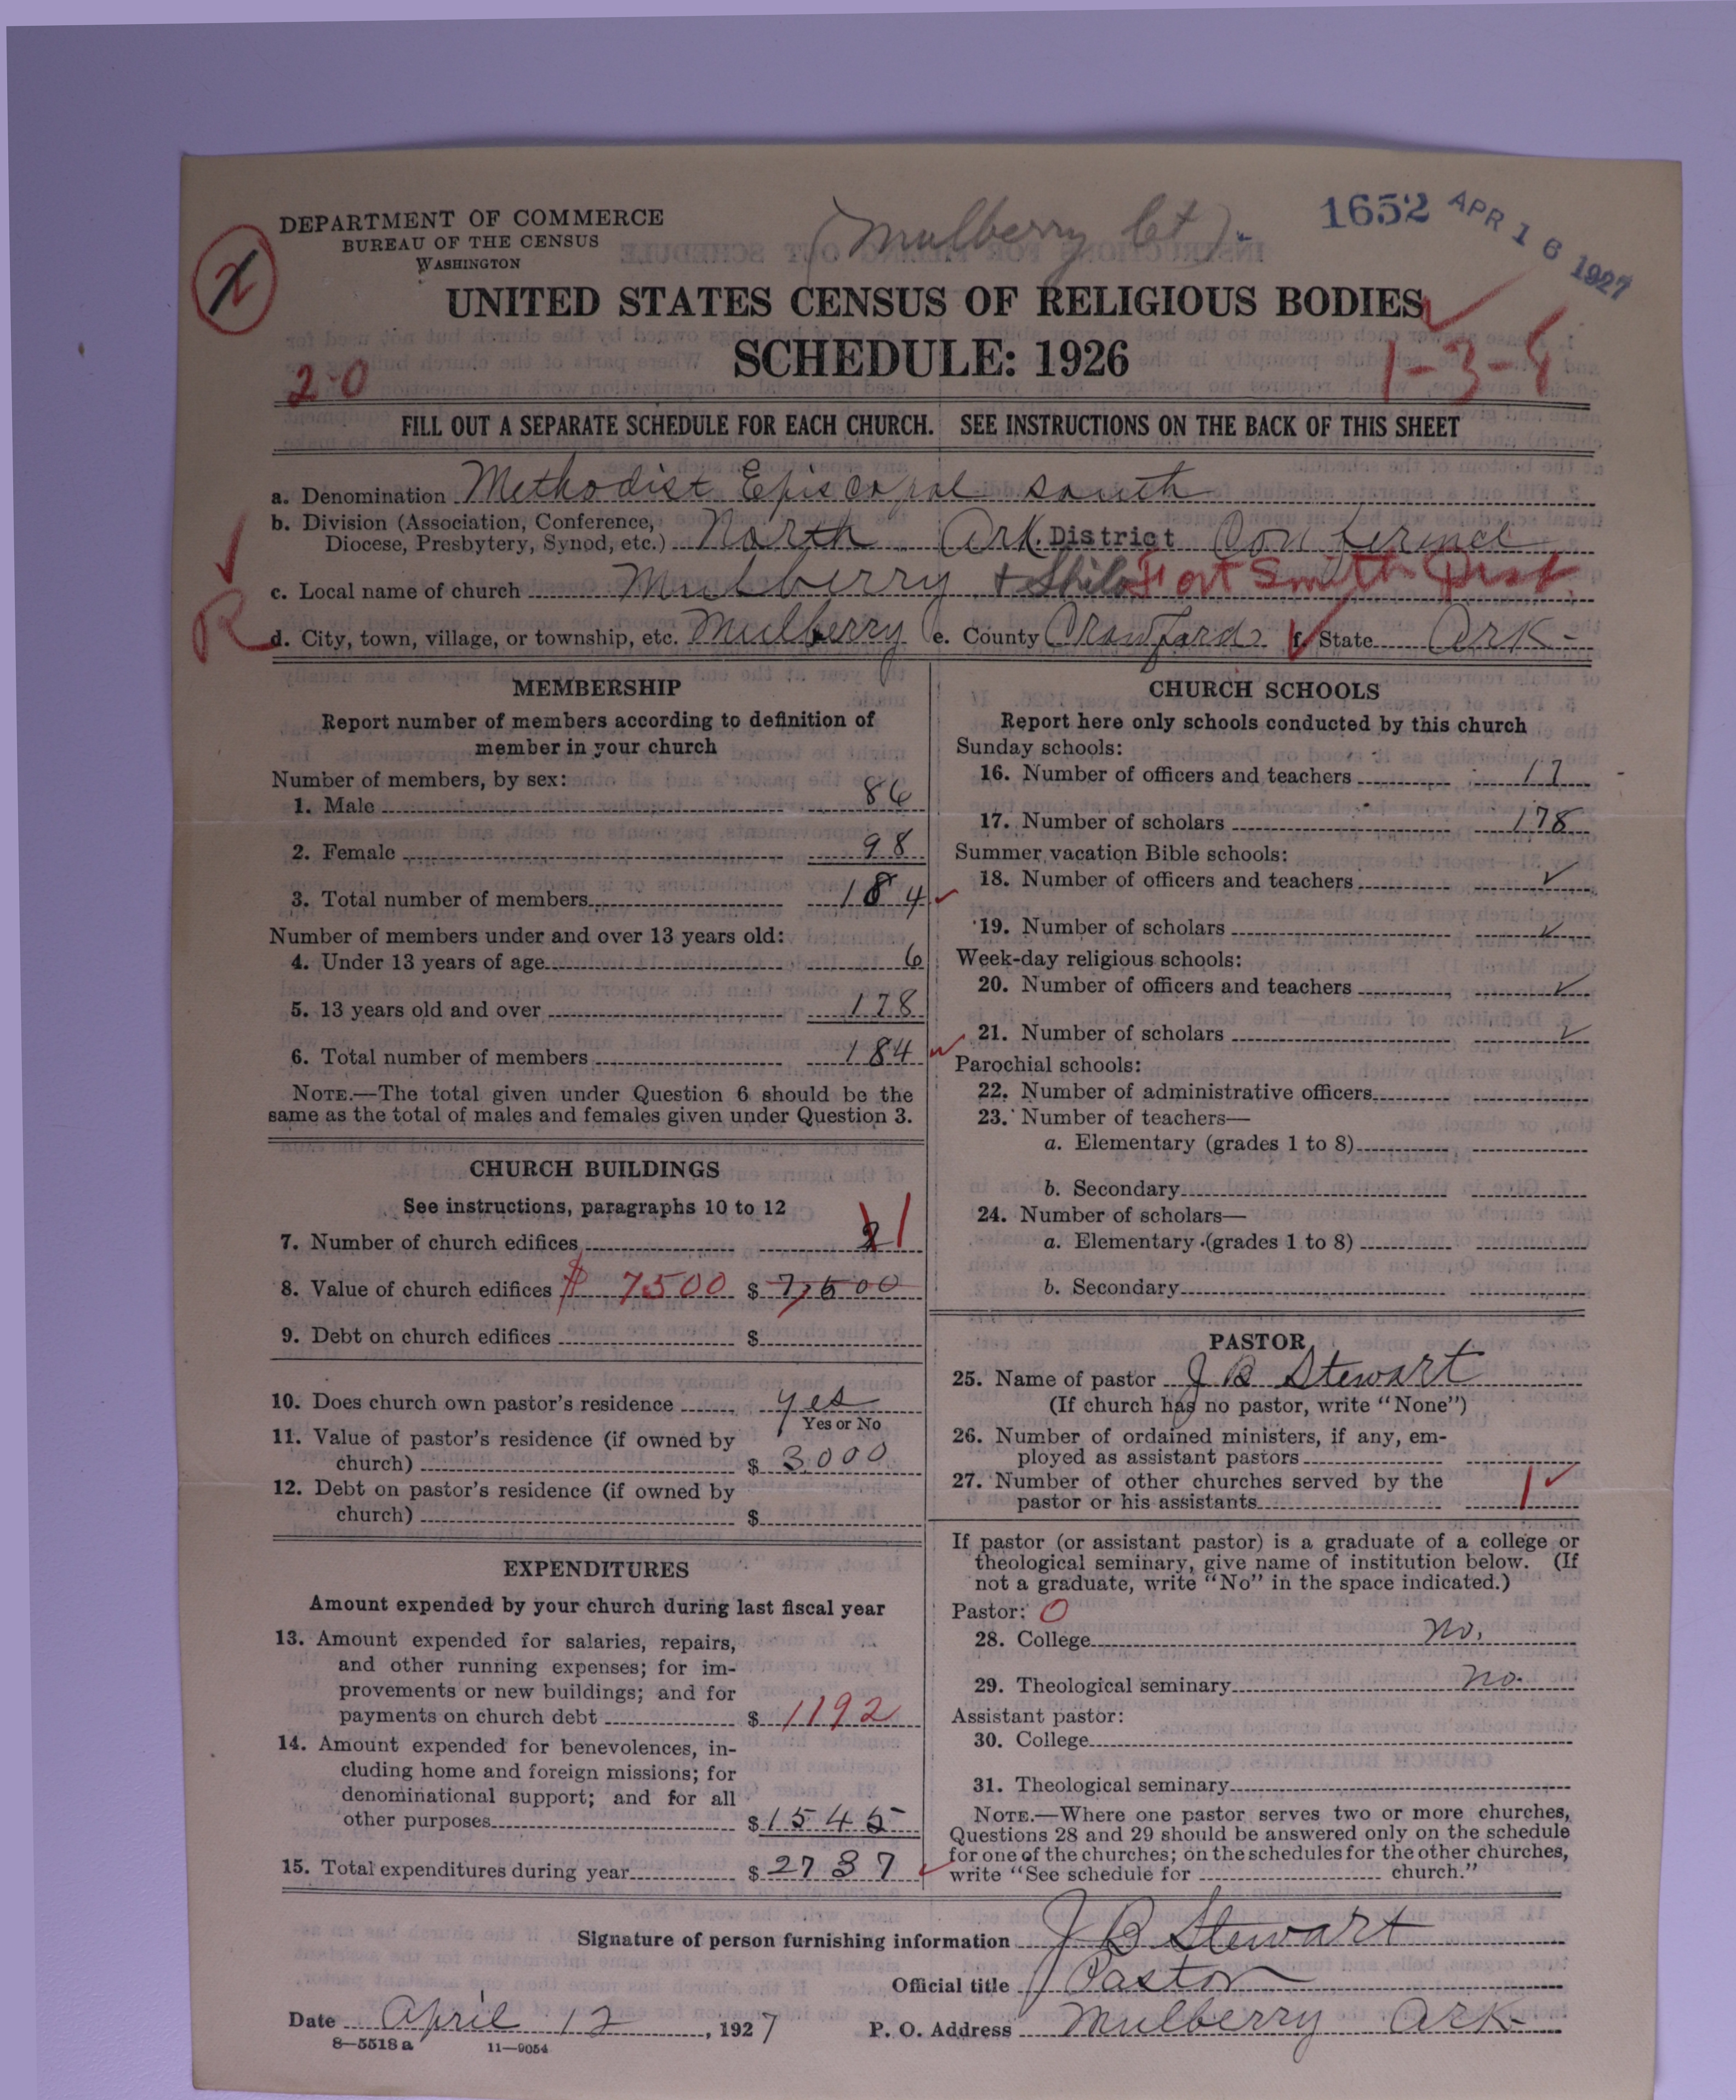 DEPARTMENT OF COMMERCE
BUREAU OF THE CENSUS
WASHINGTON
(Mulberry Ct).
1652 APR 16 1927
X
UNITED STATES CENSUS OF RELIGIOUS BODIES
SCHEDULE: 1926
2-0
1-3-8
FILL OUT A SEPARATE SCHEDULE FOR EACH CHURCH. SEE INSTRUCTIONS ON THE BACK OF THIS SHEET
a. Denomination Methodist Episcopal south
b. Division (Association, Conference, Diocese, Presbytery, Synod, etc.) North Ark. District Conference
c. Local name of church Mulberry + Shilo Fort Smith Dist.
R
d. City, town, village, or township, etc. Mulberry e. County Crawford f. State Ark-
MEMBERSHIP
Report number of members according to definition of
member in your church
Number of members, by sex:
1. Male 86
2. Female 98
3. Total number of members 184
Number of members under and over 13 years old:
4. Under 13 years of age 6
5. 13 years old and over 178
6. Total number of members 184
NOTE.—The total given under Question 6 should be the
same as the total of males and females given under Question 3.
CHURCH BUILDINGS
See instructions, paragraphs 10 to 12
7. Number of church edifices 2 1
8. Value of church edifices $ 7500 $ 7,500
9. Debt on church edifices $
10. Does church own pastor's residence yes
Yes or No
11. Value of pastor's residence (if owned by
church) $ 3000
12. Debt on pastor's residence (if owned by
church) $
EXPENDITURES
Amount expended by your church during last fiscal year
13. Amount expended for salaries, repairs,
and other running expenses; for im-
provements or new buildings; and for
payments on church debt $ 1192
14. Amount expended for benevolences, in-
cluding home and foreign missions; for
denominational support; and for all
other purposes $ 1545
15. Total expenditures during year $ 2737
CHURCH SCHOOLS
Report here only schools conducted by this church
Sunday schools:
16. Number of officers and teachers 17
17. Number of scholars 178
Summer vacation Bible schools:
18. Number of officers and teachers ✓
19. Number of scholars ✓
Week-day religious schools:
20. Number of officers and teachers ✓
21. Number of scholars ✓
Parochial schools:
22. Number of administrative officers
23. Number of teachers—
a. Elementary (grades 1 to 8)
b. Secondary
24. Number of scholars—
a. Elementary (grades 1 to 8)
b. Secondary
PASTOR
25. Name of pastor J B Stewart
(If church has no pastor, write "None")
26. Number of ordained ministers, if any, em-
ployed as assistant pastors
27. Number of other churches served by the
pastor or his assistants 1 ✓
If pastor (or assistant pastor) is a graduate of a college or
theological seminary, give name of institution below. (If
not a graduate, write "No" in the space indicated.)
Pastor: 0
28. College No.
29. Theological seminary no.
Assistant pastor:
30. College
31. Theological seminary
NOTE.—Where one pastor serves two or more churches,
Questions 28 and 29 should be answered only on the schedule
for one of the churches; on the schedules for the other churches,
write "See schedule for church."
Signature of person furnishing information J B Stewart
Official title Pastor
Date April 12, 1927 P. O. Address Mulberry Ark-
8-5518 a 11-9054